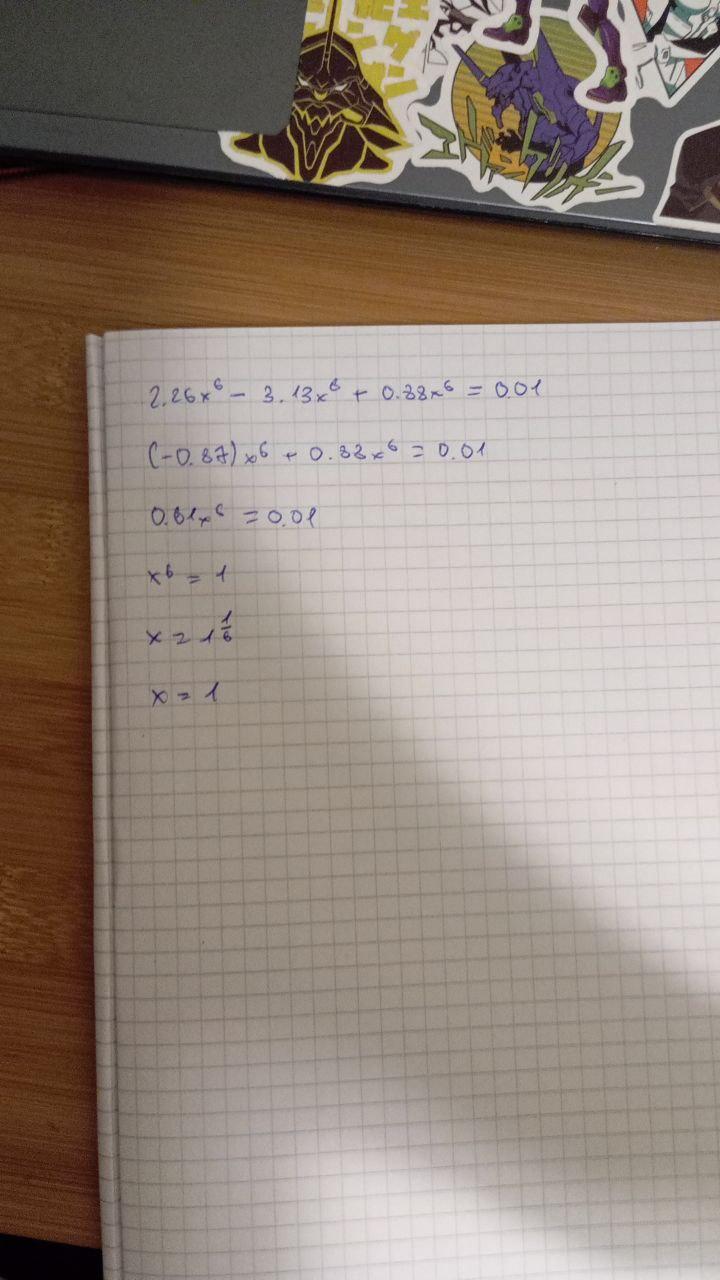 2.26x⁶ - 3.13x⁶ + 0.88x⁶ = 0.01
(-0.87)x⁶ + 0.88x⁶ = 0.01
0.01x⁶ = 0.01
x⁶ = 1
x = 1^(1/6)
x = 1